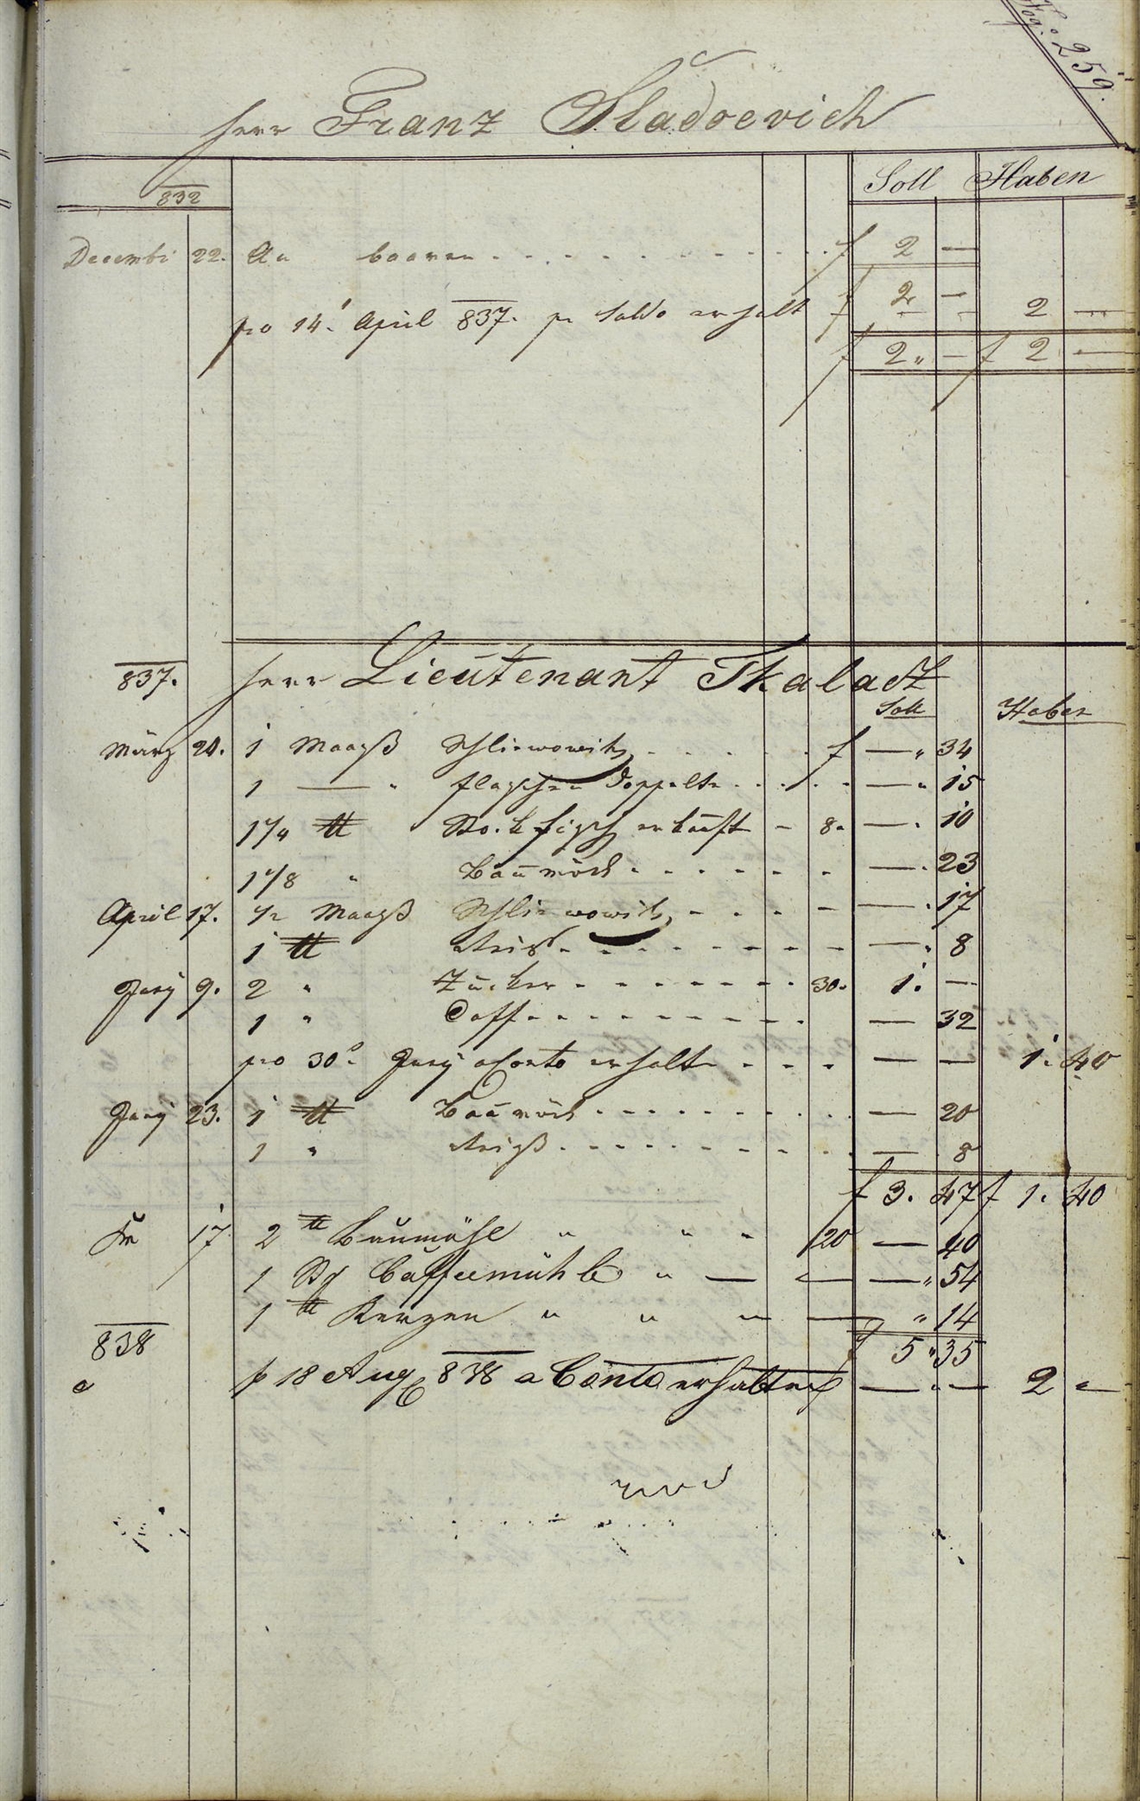 Pag: 259.
Herr Franz Sladoevich
832 Soll Haben
Decembr 22. An baaren f 2 —
pro 14. April 837. pr Saldo erhalt f 2 — 2 —
f 2 „ — f 2 —
837. Herr Lieutenant Skalack
Soll Haben
März 20. 1 Maaß Schliwowitz f — „ 34
1 — „ flaschen Doppelte — „ 15
1 1/4 ℔ Stockfisch erkauft — 8. — . 10
1 1/8 „ Baumöhl — . 23
April 17. 1/2 Maaß Schliwowitz — . 17
1 ℔ Reiß — . 8
Juny 9. 2 „ Zucker 30. 1. —
1 „ Caffe — 32
pro 30. Juny a Conto erhalt — — 1. 40
Juny 23. 1 ℔ Baumöhl — 20
1 „ Reiß — . 8
f 3. 47 f 1. 40
17 2 ℔ Baumöhl „ „ „ 20 — 40
1 St Caffeemühle „ — — — „ 54
1 ℔ Kerzen „ „ „ — „ 14
838 f 5 „ 35
p 18 Aug 838 a Conto erhalten — . — 2 „ —